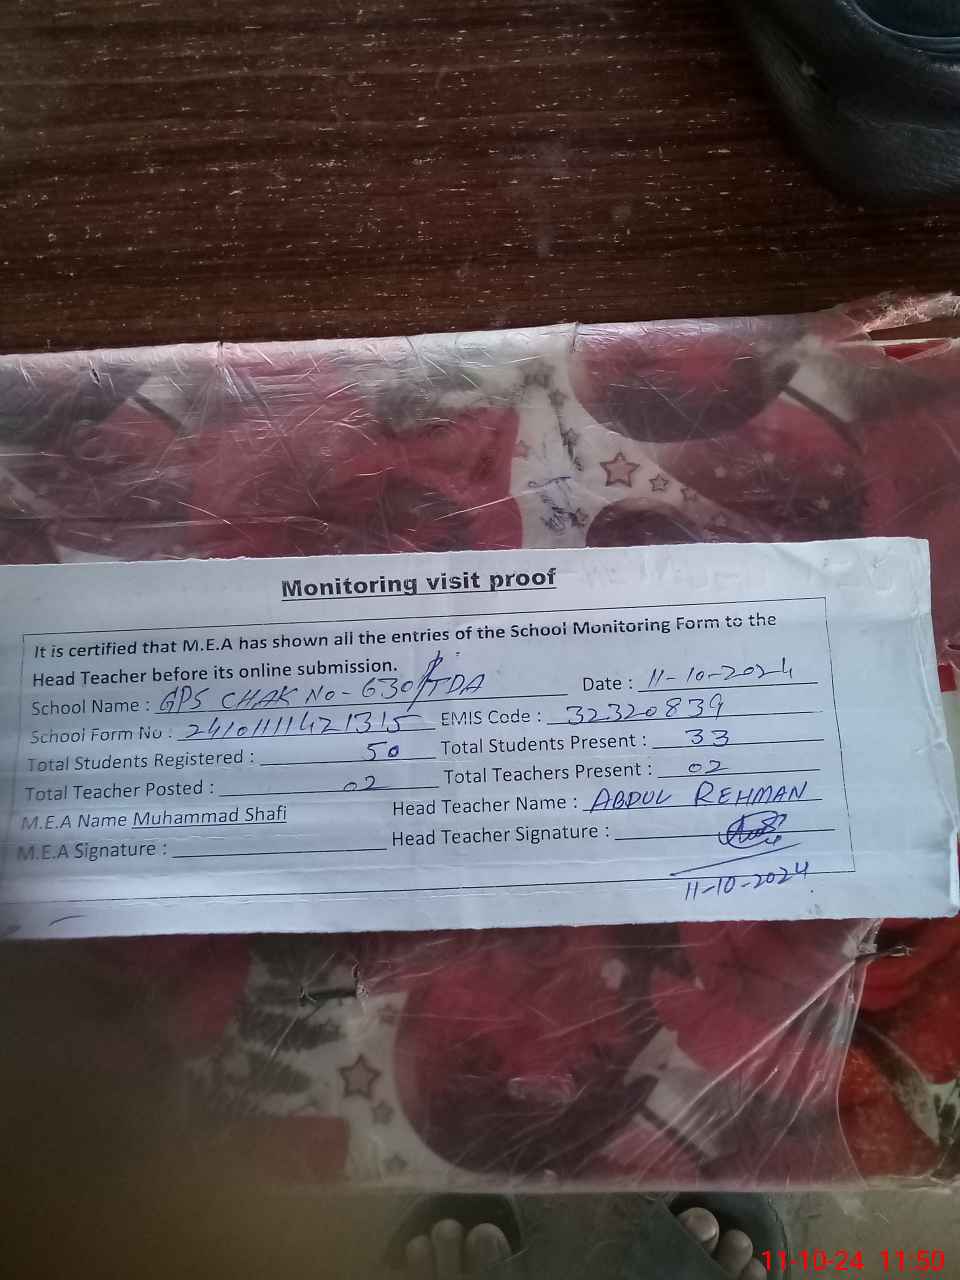 Monitoring visit proof
It is certified that M.E.A has shown all the entries of the School Monitoring Form to the
Head Teacher before its online submission.
School Name : GPS CHAK No-630/TDA Date : 11-10-2024
School Form No : 24101111421315 EMIS Code : 32320839
Total Students Registered : 50 Total Students Present : 33
Total Teacher Posted : 02 Total Teachers Present : 02
M.E.A Name Muhammad Shafi Head Teacher Name : ABDUL REHMAN
M.E.A Signature : Head Teacher Signature :
11-10-2024
11-10-24 11:50